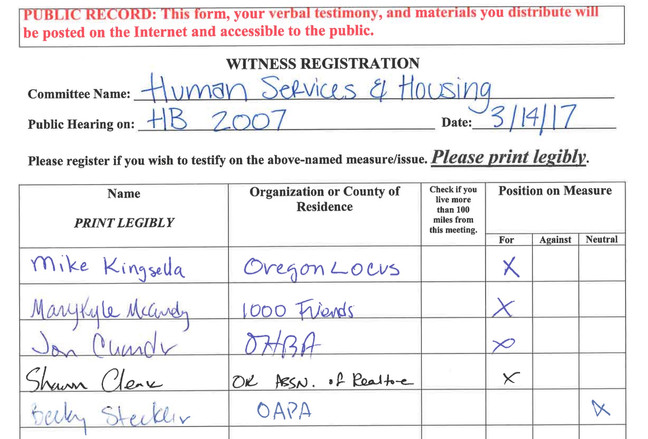 PUBLIC RECORD: This form, your verbal testimony, and materials you distribute will
be posted on the Internet and accessible to the public.
WITNESS REGISTRATION
Committee Name: Human Services & Housing
Public Hearing on: HB 2007 Date: 3/14/17
Please register if you wish to testify on the above-named measure/issue. Please print legibly.
Name
PRINT LEGIBLY
Organization or County of
Residence
Check if you
live more
than 100
miles from
this meeting.
Position on Measure
For Against Neutral
Mike Kingsella Oregon LOCUS X
MaryKyle McCurdy 1000 Friends X
Jon OHBA X
Shawn OR ASSN. of X
Becky OAPA X